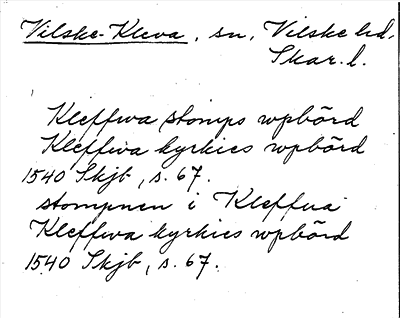 Vilske-Kleva, sn, Vilske hd,
Skar. l.
Kleffwa stomps wpbörd
Kleffwa kyrkies wpbörd
1540 Skjb, s. 67.
stompnen i Kleffua
Kleffwa kyrkies wpbörd
1540 Skjb, s. 67.